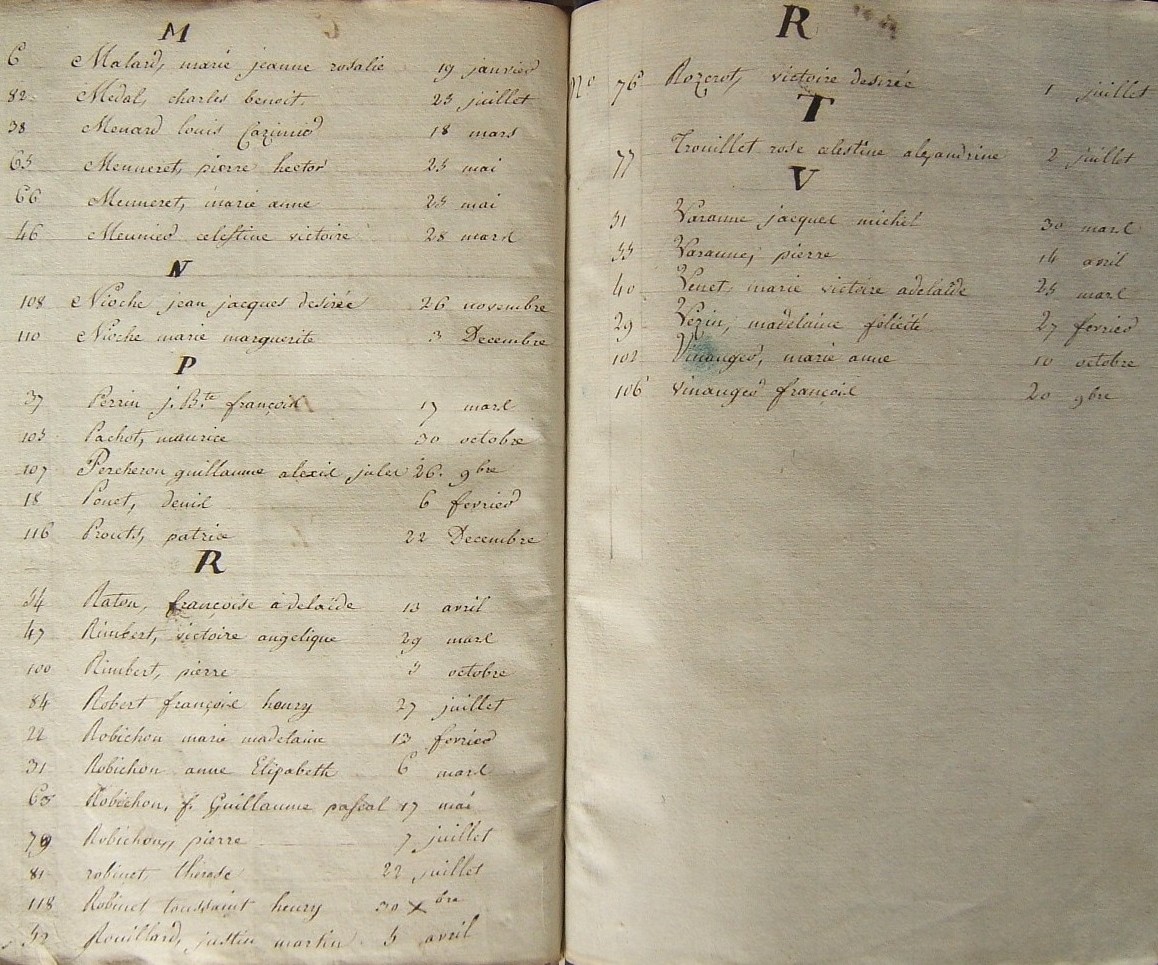 M
6 Malard, marie jeanne rosalie 19 janvier
82 Medal, charles benoit. 23 juillet
38 Menard louis Cazimir 18 mars
65 Menneret, pierre hector 25 mai
66 Menneret, marie anne 25 mai
46 Meunier celestine victoire 28 mars
N
108 Nioche jean jacques desirée 26 novembre
110 Nioche marie marguerite 3 Decembre
P
37 Perrin j. Bte françois 17 mars
103 Pachot, maurice 30 octobre
107 Percheron guillaume alexis jules 26. 9bre
18 Ponet, denis 6 fevrier
116 Prouts, patrice 22 Decembre
R
54 Raton, françoise adelaïde 13 avril
47 Rimbert, victoire angelique 29 mars
100 Rimbert, pierre octobre
84 Robert françois henry 27 juillet
22 Robichon marie madelaine 13 fevrier
31 Robichon anne Elisabeth 6 mars
63 Robichon, f. Guillaume pascal 17 mai
79 Robichon, pierre 7 juillet
81 robinet, therese 22 juillet
118 Robinet toussaint henry 30 Xbre
52 Rouillard, justin martin 5 avril
R
No 76 Rozerot, victoire desirée 1 juillet
T
77 Trouillet rose celestine alexandrine 2 juillet
V
51 Varanne jacques michel 30 mars
55 Varanne, pierre 14 avril
40 Venet, marie victoire adelaïde 25 mars
29 Vezin, madelaine félicité 27 fevrier
102 Vinanger, marie anne 10 octobre
106 vinanger françois 20 9bre